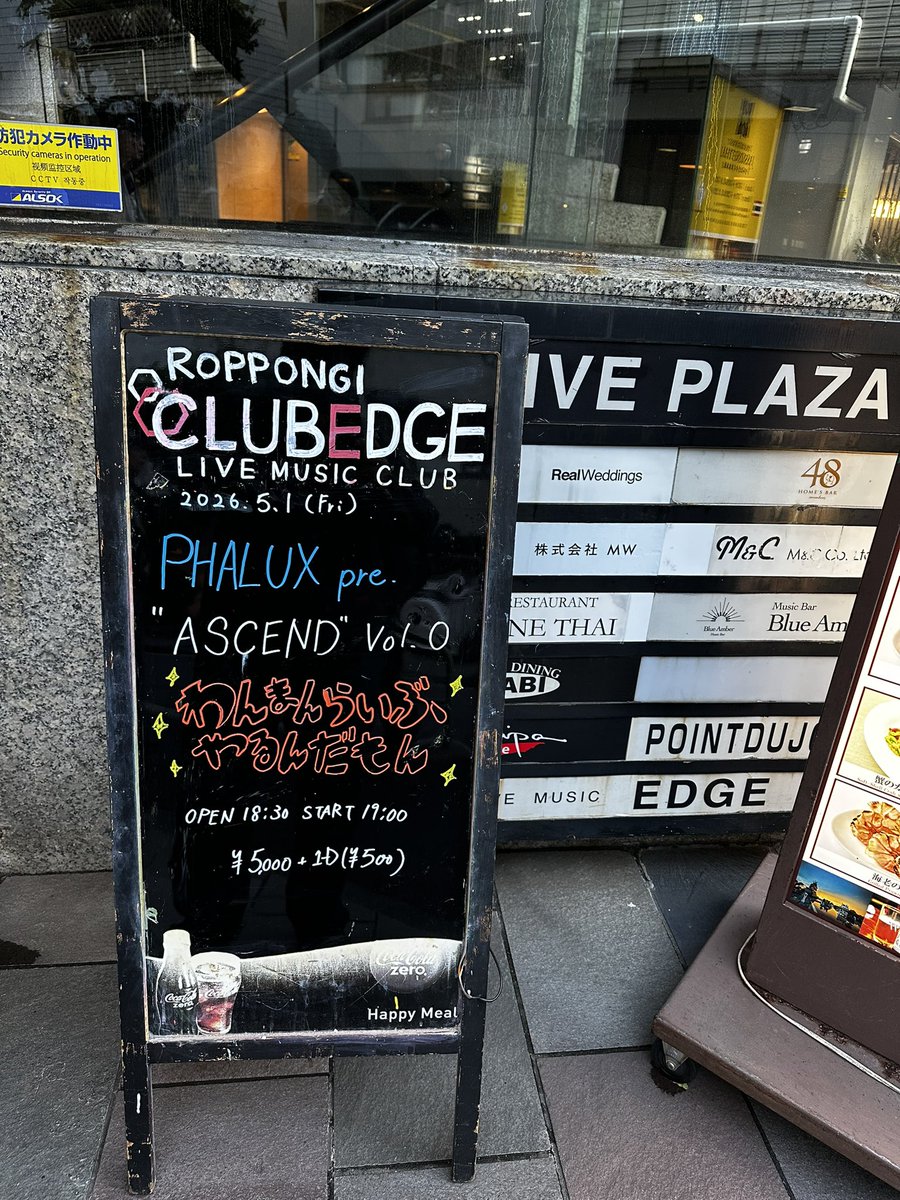 防犯カメラ作動中
Security cameras in operation
视频监控区域
CCTV 작동중
ALSOK
ROPPONGI
CLUBEDGE
LIVE MUSIC CLUB
2026.5.1 (Fri)
PHALUX pre.
"ASCEND" Vol.0
わんまんらいぶ、
やるんだもん
OPEN 18:30 START 19:00
¥5,000+1D(¥500)
Coca-Cola
zero
Coca-Cola
Coca-Cola
zero.
Happy Meal
IVE PLAZA
RealWeddings
48
HOME'S BAR
株式会社 MW
M&C M&C Co. Ltd
RESTAURANT
NE THAI
Blue Amber
Music Bar
Music Bar
Blue Am
DINING
ABI
POINTDUJO
VE MUSIC
EDGE
蟹の
海老の